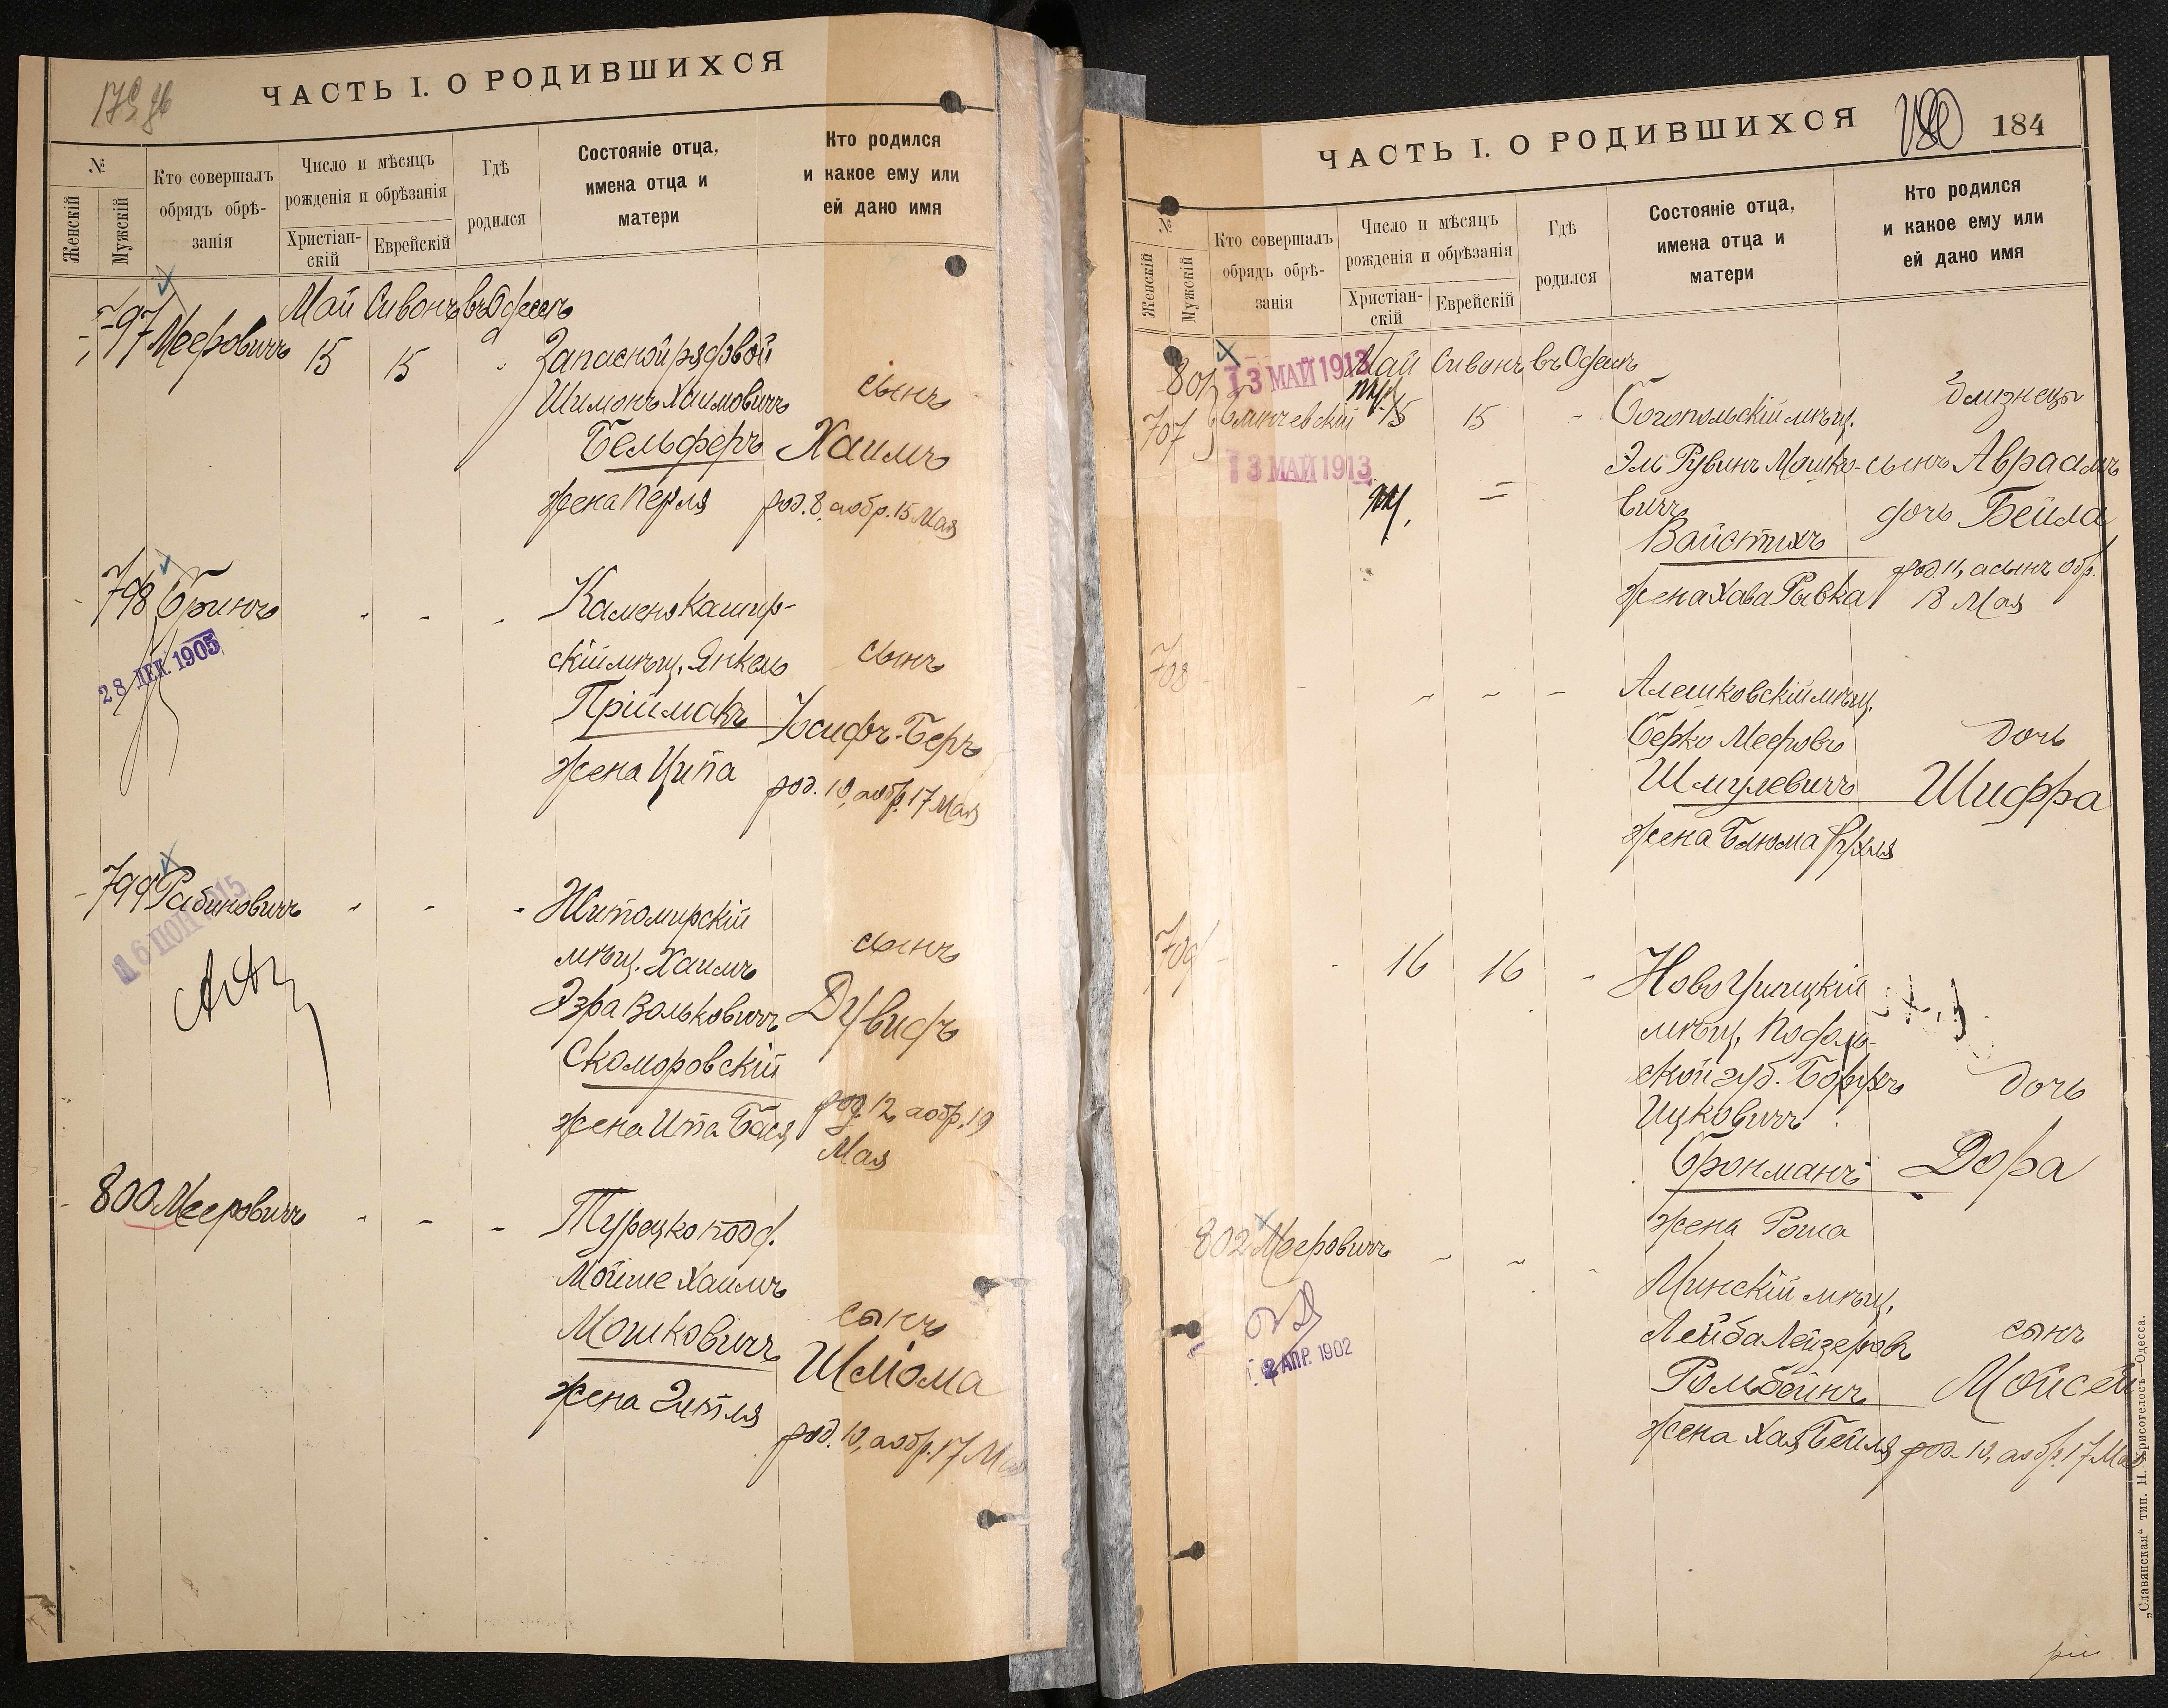 ЧАСТЬ I. О РОДИВШИХСЯ
№
Женскій
Мужскій
Кто совершалъ
обрядъ обрѣ-
занія
Число и мѣсяцъ
рожденія и обрѣзанія
Христіан-
скій
Еврейскій
Гдѣ
родился
Состояніе отца,
имена отца и
матери
Кто родился
и какое ему или
ей дано имя
Май Сивонъ въ Одессѣ
797 Мееровичъ 15 15 Запасной рядовой
Шимонъ Хаимовичъ сынъ
Бельферъ Хаимъ
жена Перля род. 8, а обр. 15 Мая
798 Гринъ Каменокашир-
28 ДЕК 1905
скій мѣщ. Янкель сынъ
Пріймакъ Іосифъ-Беръ
жена Ципа род. 10, а обр. 17 Мая
799 Рабиновичъ Житомирскій
мѣщ. Хаимъ сынъ
Эзра Вольковичъ Дувидъ
Скоморовскій
жена Ита Бася род. 12, а обр. 19
Мая
800 Мееровичъ Турецкоподд.
Мойше Хаимъ
Мошковичъ сынъ
Шлёма
жена Зитля
род. 10, а обр. 17
ЧАСТЬ I. О РОДИВШИХСЯ
184
№
Женскій
Мужскій
Кто совершалъ
обрядъ обрѣ-
занія
Число и мѣсяцъ
рожденія и обрѣзанія
Христіан-
скій
Еврейскій
Гдѣ
родился
Состояніе отца,
имена отца и
матери
Кто родился
и какое ему или
ей дано имя
801 13 МАЙ 1913 Май Сивонъ въ Одессѣ
707 15 15 Богопольскій мѣщ. близнецы
13 МАЙ 1913
Эль Рувинъ Мошко- сынъ Авраамъ
вичъ дочь Бейла
Вайстихъ
жена Хава Рывка род. 11, а сынъ обр.
18 Мая
708 Алешковскій мѣщ.
Берко Мееровъ дочь
Шмулевичъ Шифра
жена Блюма Рухля
709 16 16 Ново Ушицкій
мѣщ. Подоль-
ской губ. дочь
Ицковичъ
Бронманъ Дора
жена
802 Мееровичъ Минскій мѣщ.
2 АПР. 1902
Лейба Лейзеровъ сынъ
Ромбейнъ Мойсей
жена Хая Бейля род. 10, а обр. 17 Мая
„Славянская“ тип. Н. Хрисогелосъ—Одесса.